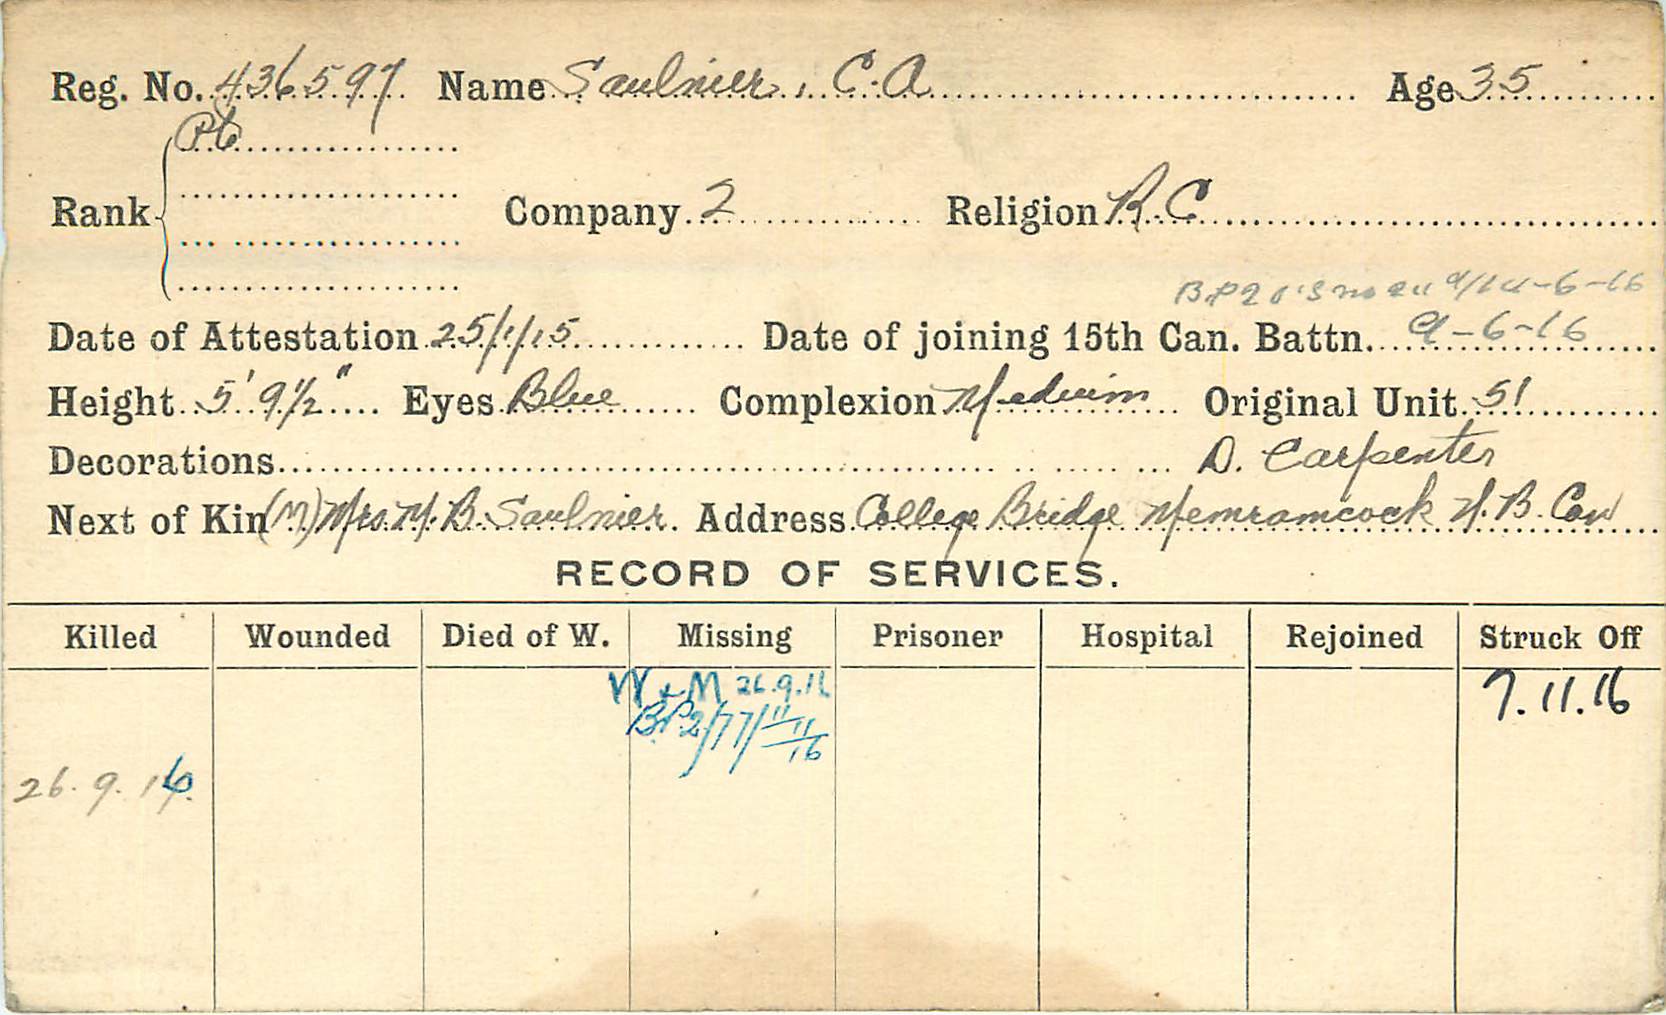 Reg. No. 436597 Name Saulnier, C.A Age 35
Pte
Rank Company 2 Religion R.C
9/14-6-16
Date of Attestation 25/1/15 Date of joining 15th Can. Battn. 9-6-16
Height 5' 9½" Eyes Blue Complexion Medium Original Unit 51
Decorations D. Carpenter
Next of Kin (M) Mrs. M. B. Saulnier. Address College Bridge Memramcook N.B. Can
RECORD OF SERVICES.
Killed Wounded Died of W. Missing Prisoner Hospital Rejoined Struck Off
W + M 26.9.16 7.11.16
BP2/77/11/11/16
26.9.16